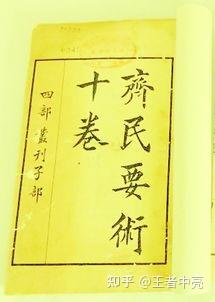 齊民要術
十卷
四部叢刊子部
知乎 @王者中亮